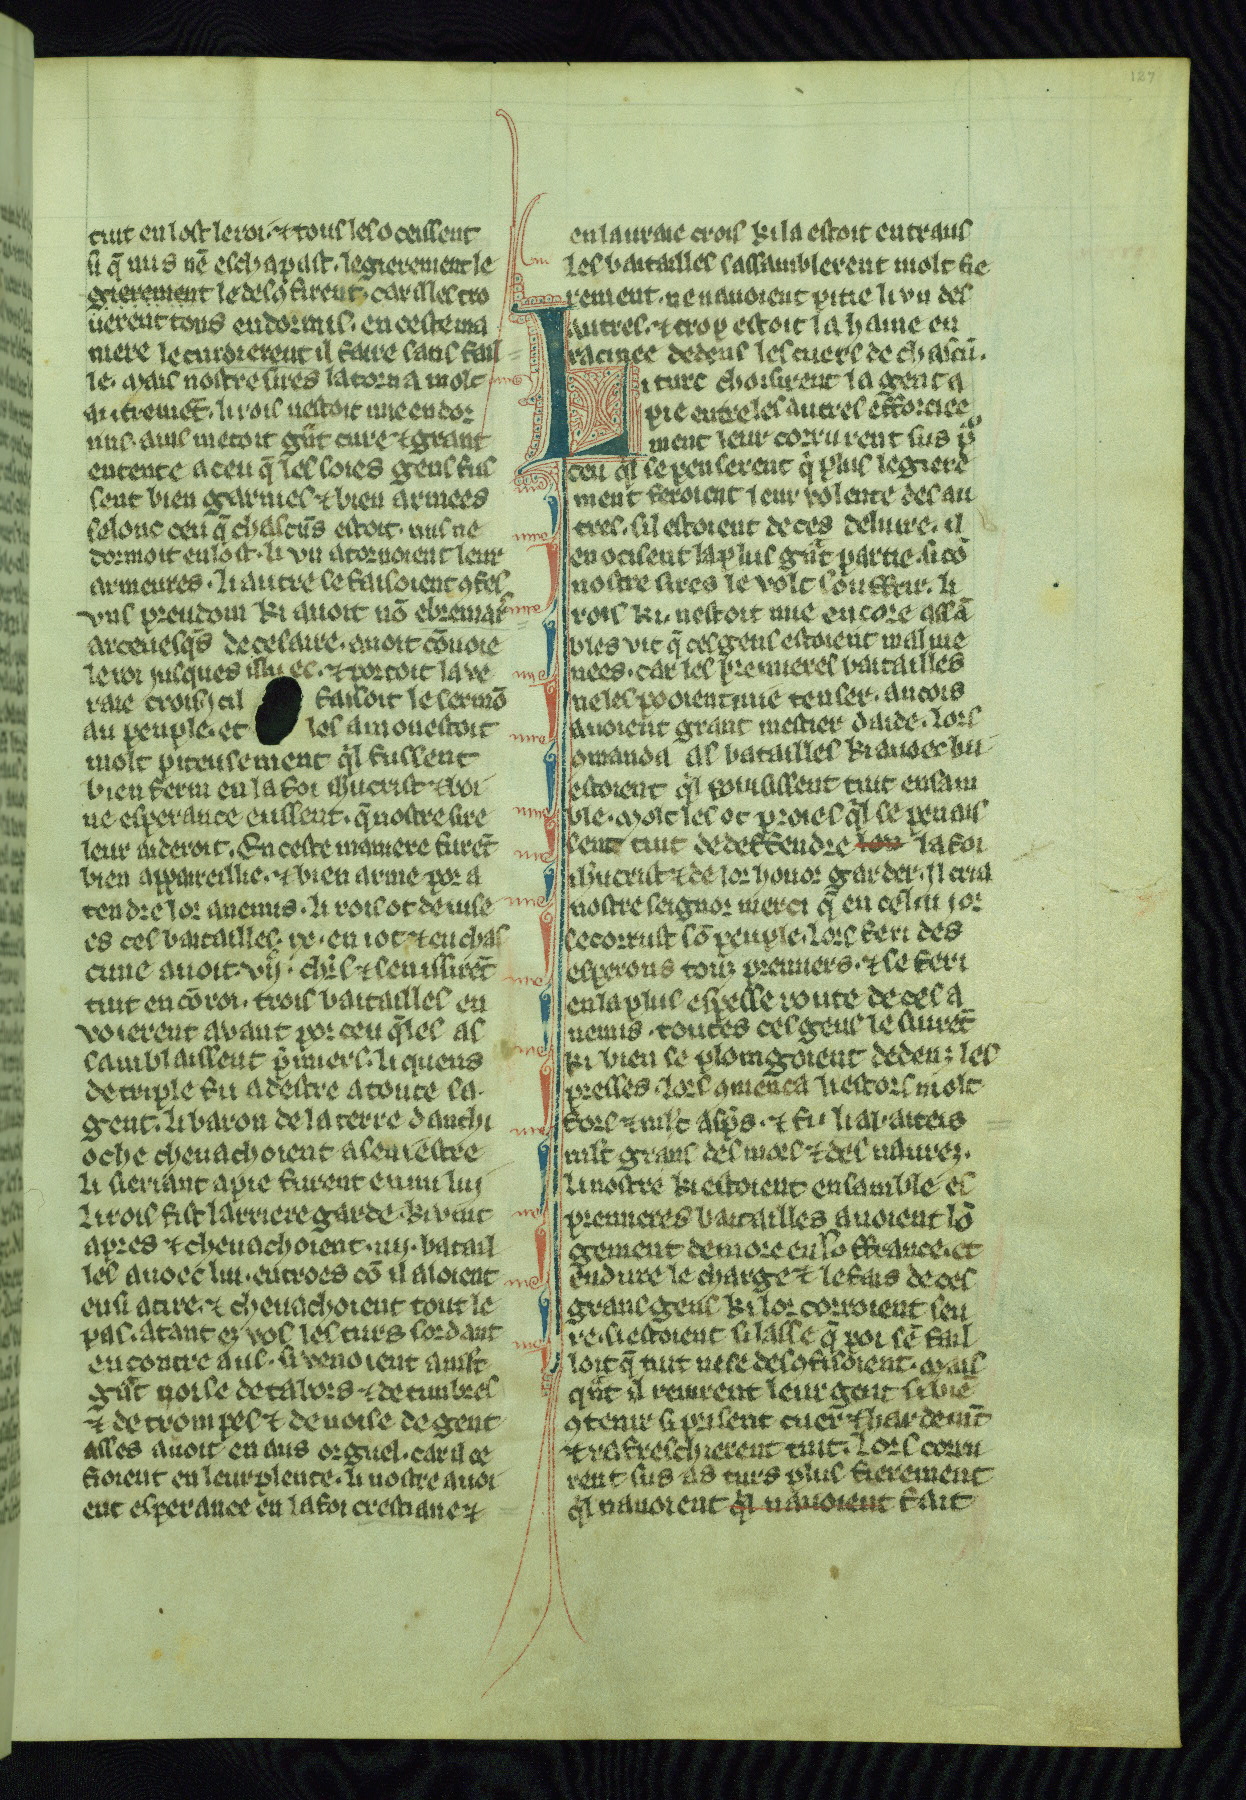 127
tuit en lost le roi. ⁊ tous les oceissent
si q̄ nus nē eschapast. legierement le
gierement le deso firent. car il les tro
uerent tous endormis. en ceste ma
niere le cuidierent il faire sans fail
le. Mais nostre sires la torna molt
autremēt. li rois nestoit mie endor
mis. ains metoit gr̄nt cure ⁊ grant
entente a ceu q̄ les soies gens fus
sent bien garnies ⁊ bien armees
selonc ceu q̄ chascūs estoit. nus ne
dormoit en lost. li vn atornoient leur
armeures. li autre se faisoient ꝯfes
vns preudom ki auoit nō ebremar
arceuesq̄s de cesaire. auoit cōuoie
le roi jusques illuec. ⁊ portoit la ve
raie crois. cil faisoit le sermō
au peuple. et les amonestoit
molt piteusement q̄l fussent
bien ferm en la foi ihucrist ⁊ boi
ne esperance eussent. q̄ nostre sire
leur aideroit. En ceste maniere furēt
bien appareillie. ⁊ bien arme por a
tendre lor anemis. li rois ot deuise
es ces batailles. xv. en i ot ⁊ en chas
cune auoit .vij. ch̄rs ⁊ sen issirēt
tuit en cōroi. trois batailles en
voierent avant por ceu q̄les as
samblaissent p̄miers. li quens
de triple fu a destre a toute sa
gent. li baron de la terre danthi
oche cheuachoient a senestre
li seriant a pie furent en mi lui
li rois fist larriere garde. ki vint
apres ⁊ cheuachoient .iiij. batail
les auoec lui. entroes cō il aloient
ensi atire. ⁊ cheuachoient tout le
pas. atant ez vos les turs sordant
encontre aus. si venoient a mlt
gr̄nt noise de tabors ⁊ de timbres
⁊ de trompes ⁊ de noise de gent
asses auoit en aus orguel. car il se
fioient en leur plente. li nostre auoi
ent esperance en la foi crestiane ⁊
en la uraie crois ki la estoit entraus
les batailles sassamblerent molt fie
rement. ne nauoient pitie li vn des
autres. ⁊ trop estoit la haine en
racinee dedens les cuers de chascū.
Li turc choisirent la gent a
pie entre les autres esforciee
ment leur corrurent sus p̄
ceu q̄l se penserent q̄ plus legiere
ment feroient leur volente des au
tres. sil estoient de ces deliure. il
en ocisent la plus gr̄nt partie. si cō
nostre sires le volt souffrir. li
rois ki nestoit mie encore assā
bles vit q̄ ces gens estoient mal me
nees. car les premieres batailles
ne les pooient mie tenser. ancois
auoient grant mestier daide. lors
ꝯmanda as batailles ki auoec lui
estoient q̄l fouissent tuit ensam
ble. Molt les ot proies q̄l se penais
sent tuit de deffendre lor la foi
ihucrist ⁊ de lor honor garder. Il cria
nostre seignor merci q̄ en celui ior
secorrust sō peuple. lors feri des
esperons touz premiers. ⁊ se feri
en la plus espesse route de ces a
nemis. toutes ces gens le siurēt
ki bien se plomgoient dedenz les
presses. lors ꝯmenca li estors molt
fors ⁊ mlt asp̄s. ⁊ fu li abateis
mlt grans des mors ⁊ des naurez.
li nostre ki estoient ensamble es
premieres batailles auoient lō
gement demore en soffrance. et
endure le charge ⁊ le fais de ces
grans gens ki lor corroient seu
re. si estoient si lasse q̄ poi sē fail
loit q̄ tuit ne se desofisoient. Mais
q̄nt il reuirent leur gent si biē
ꝯtenir si prisent cuer ⁊ hardemēt
⁊ rafreschierent tuit. lors corru
rent sus as turs plus fierement
q̄l nauoient q̄l nauoient fait